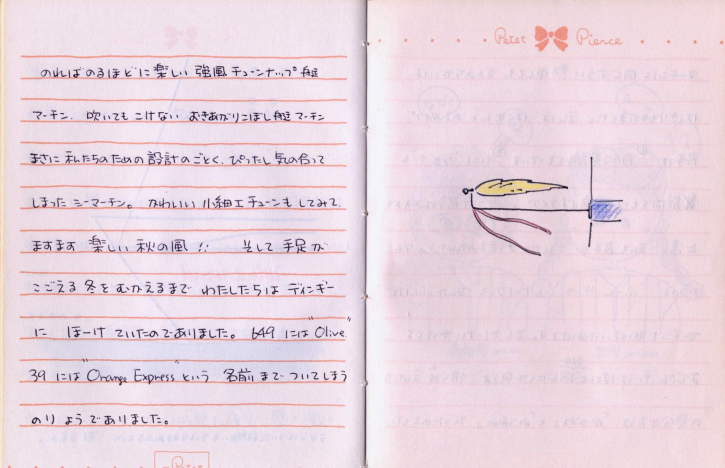 のればのるほどに楽しい 強風チューンナップ艇
マーチン. 吹いてもこけない おきあがりこぼし艇 マーチン
まさに私たちのための設計のごとく、ぴったし気の合って
しまった シーマーチン。 かわいい 小細工チューンもしてみて
ますます 楽しい 秋の風!! そして 手足が
こごえる 冬を むかえるまで わたしたちは ディンギー
に ほーけていたのでありました。 649には "Olive"
39には "Orange Express" という 名前までついてしまう
のりようでありました。
Petet Pierce